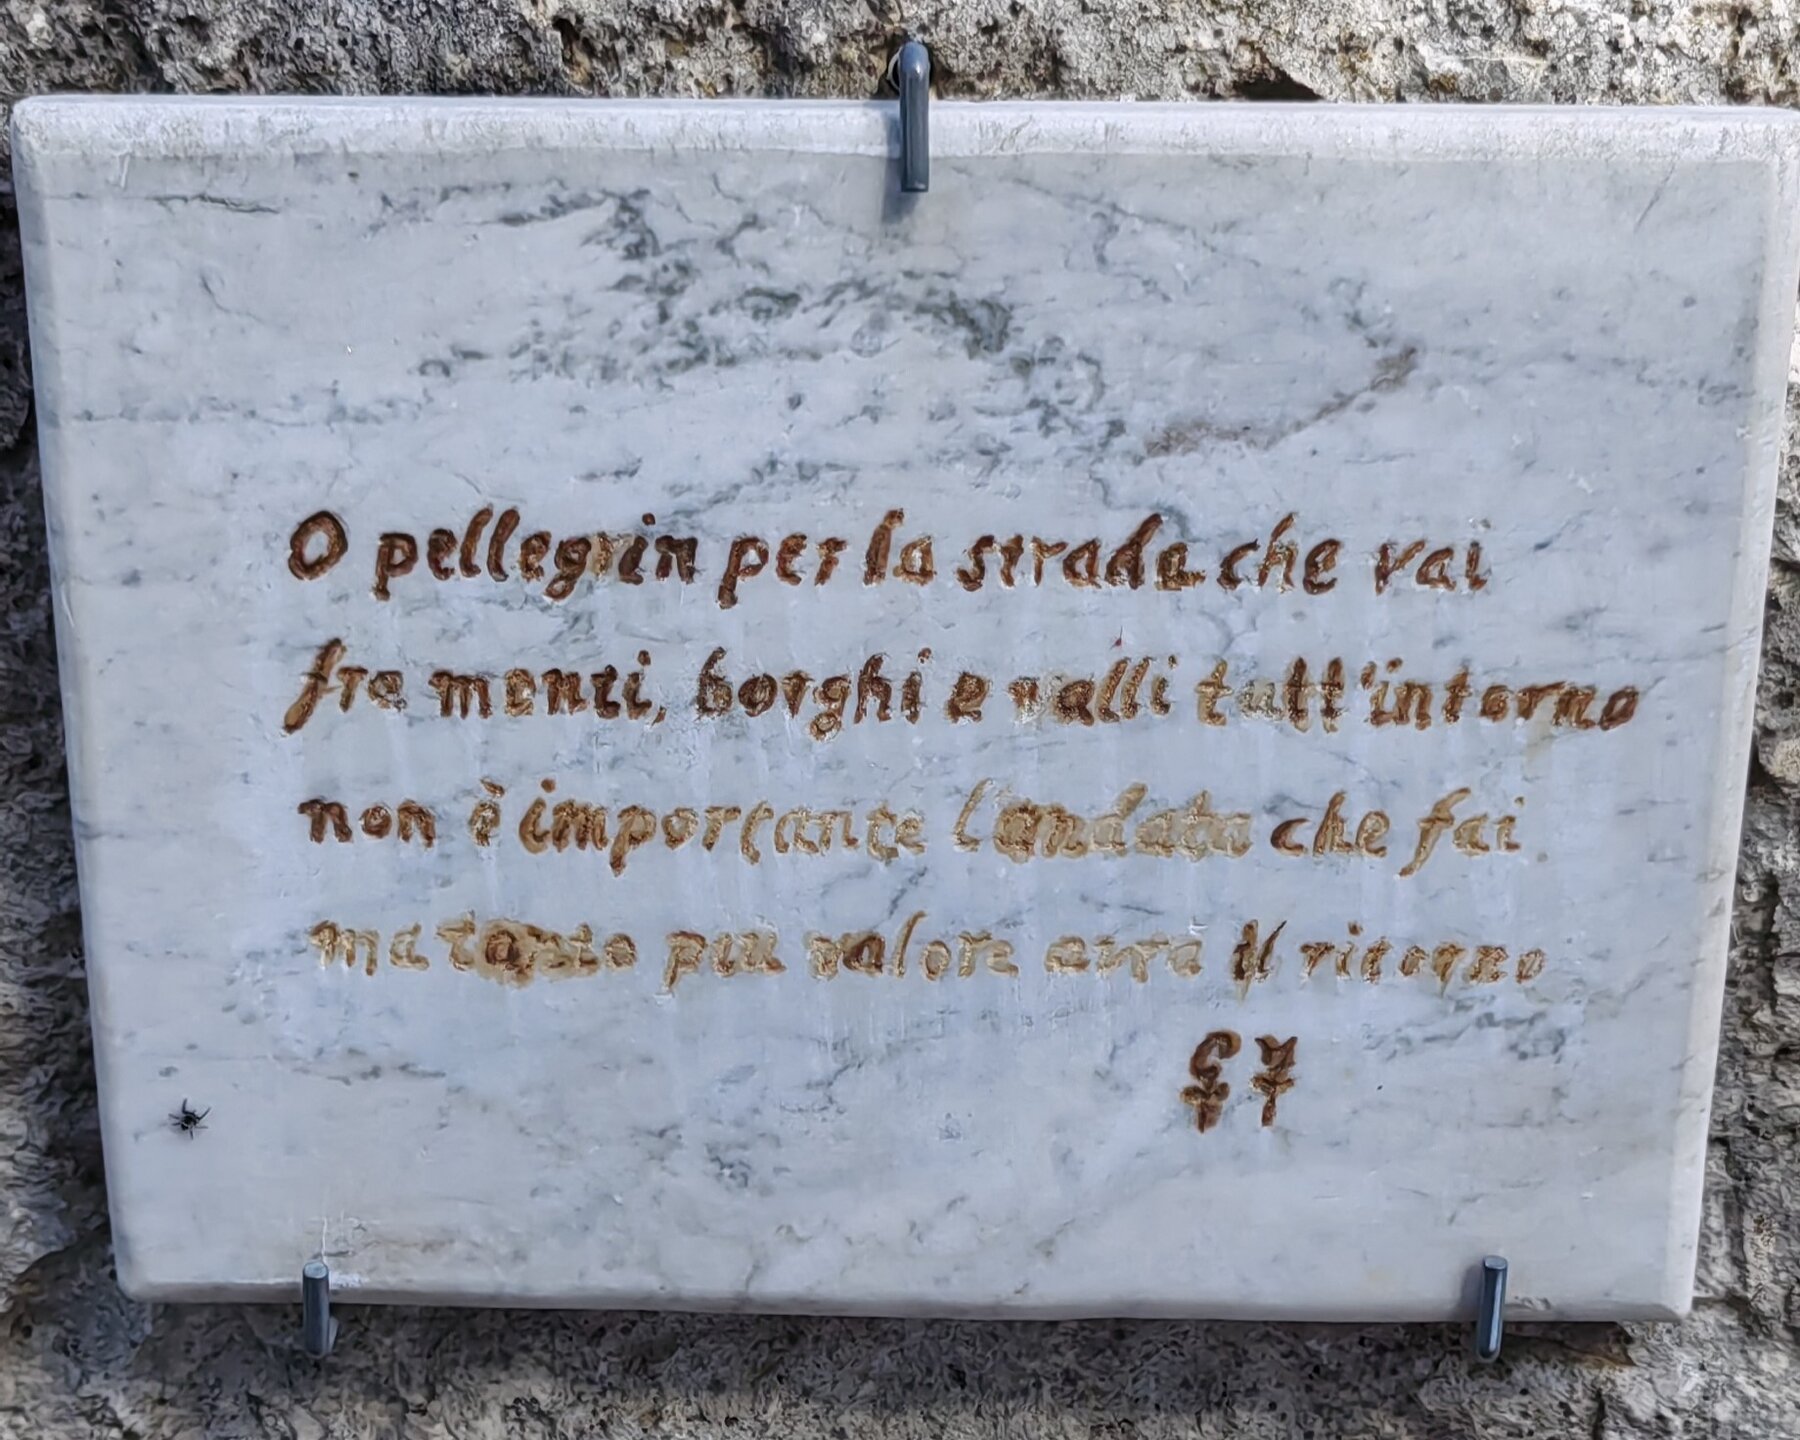 O pellegrin per la strada che vai
fra monti, borghi e valli tutt'intorno
non è importante l'andata che fai
ma tanto più valore avrà il ritorno